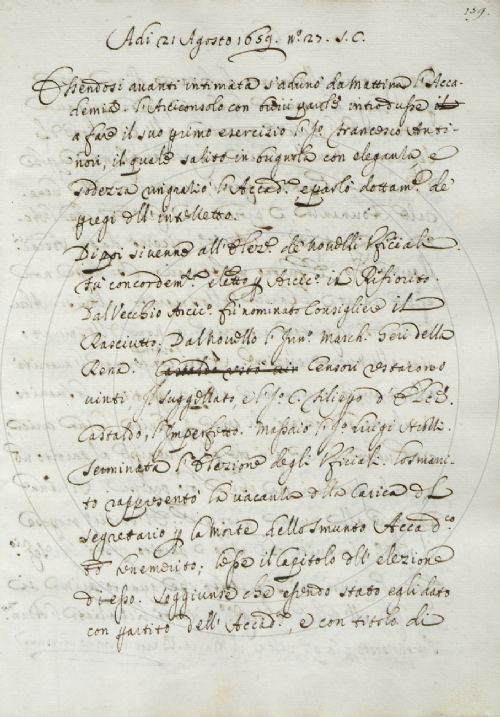 159.
Adi 21 Agosto 1659. N.º 27. S.C.
Essendosi avanti intimata s'adunò da Mattina l'Acca-
demia. l'Arciconsolo con brevi parole introdusse
a fare il suo primo esercizio l'Sr. Francesco Anti-
nori, il quale salito in bugnola con eleganza e
sodezza ringratiò l'Accad.ª e parlò dottam.e de
pregi dell' intelletto.
Dippoi si venne all' Elez.e de novelli Ufficiali
fu concordem.e eletto p Arcic.º il Rifiorito.
Dal Vecchio Arcic.º fù nominato Consigliere il
Rasciutto, Dal Novello l' March. Geri della
Rena. Censori restarono
vinti Suggellato e l'Sr. C. Filippo d'
Castaldo, l'Imperfetto. Massaio l'Sr. Luigi
Terminata l'Elezione degli Ufficiali. lo Smari-
to rappresentò la vacanza della Carica del
Segretario p la Morte dello Smunto Accad.º
benemerito; lesse il Capitolo dell' elezione
di esso. Soggiunse che essendo stato egli dato
con partito dell' Accad.ª, e con titolo di